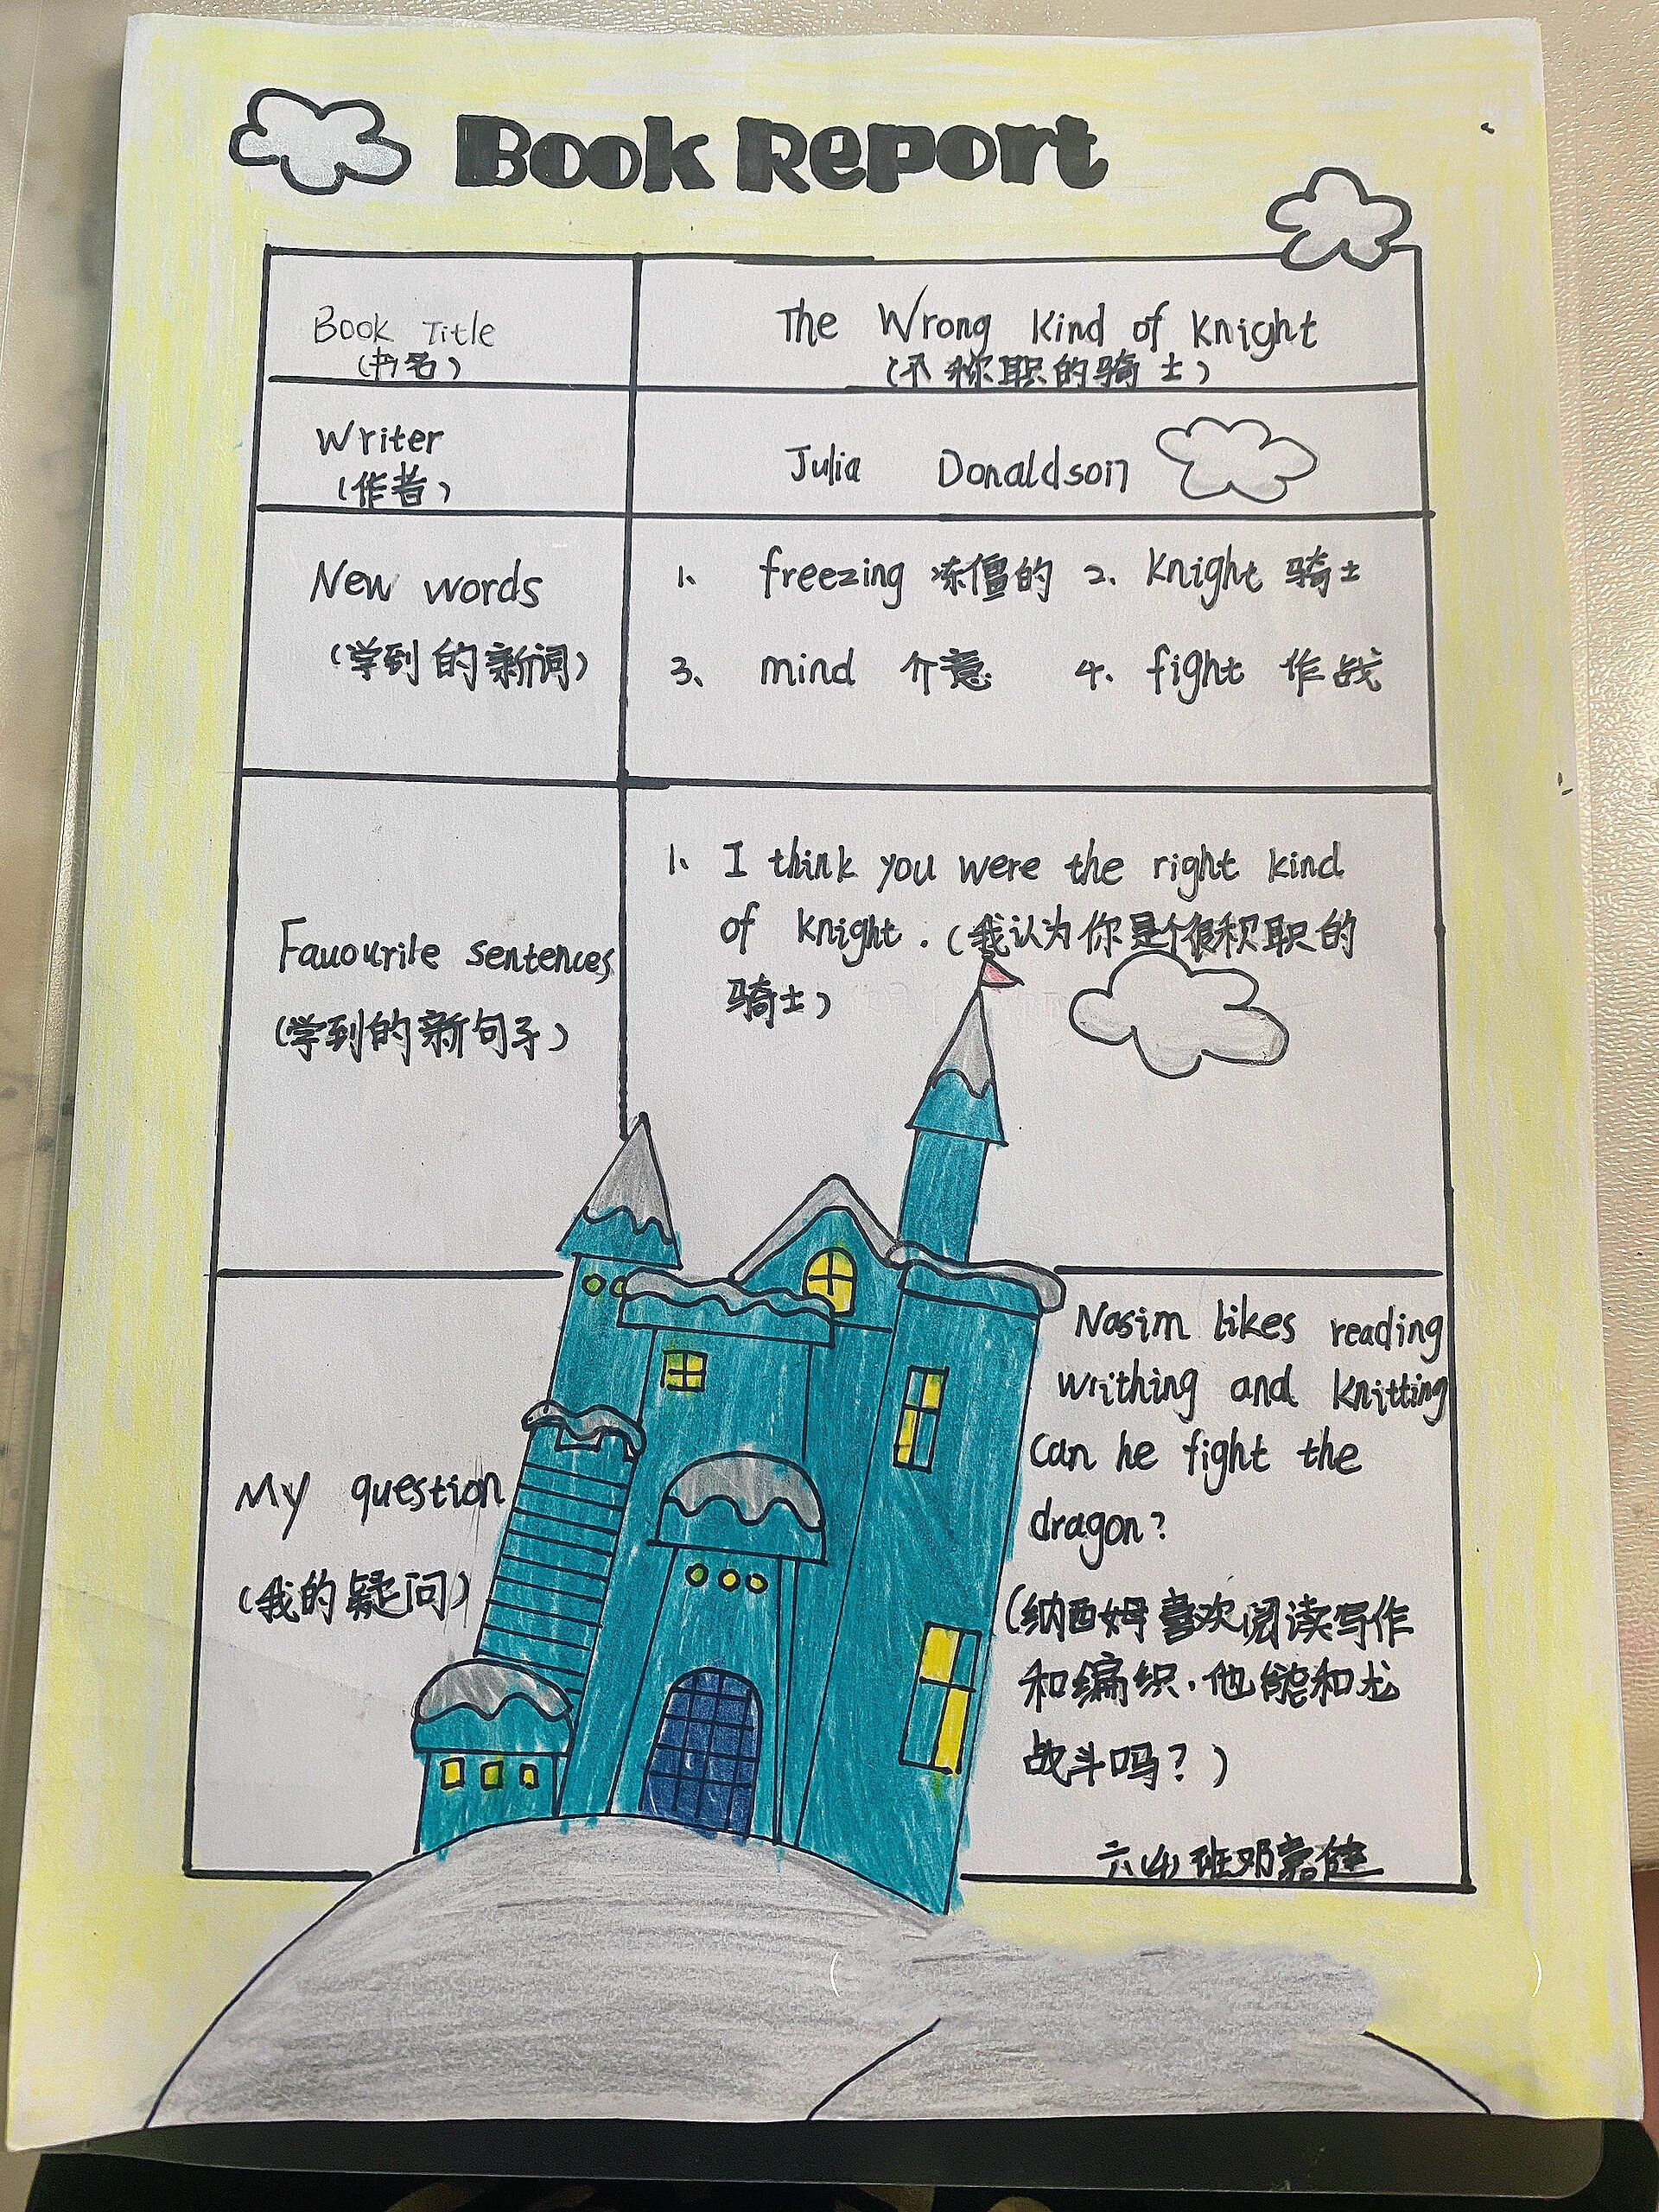 Book Report
Book Title
(书名)
The Wrong Kind of Knight
(不称职的骑士)
Writer
(作者)
Julia Donaldson
New words
(学到的新词)
1、 freezing 冻僵的 2、 Knight 骑士
3、 mind 介意 4、 fight 作战
Favourile sentences
(学到的新句子)
1、 I think you were the right kind
of knight. (我认为你是个很积职的
骑士)
My question
(我的疑问)
Nasim likes reading
writhing and knitting
Can he fight the
dragon?
(纳西姆喜欢阅读写作
和编织.他能和龙
战斗吗？)
六(4)班邓嘉健